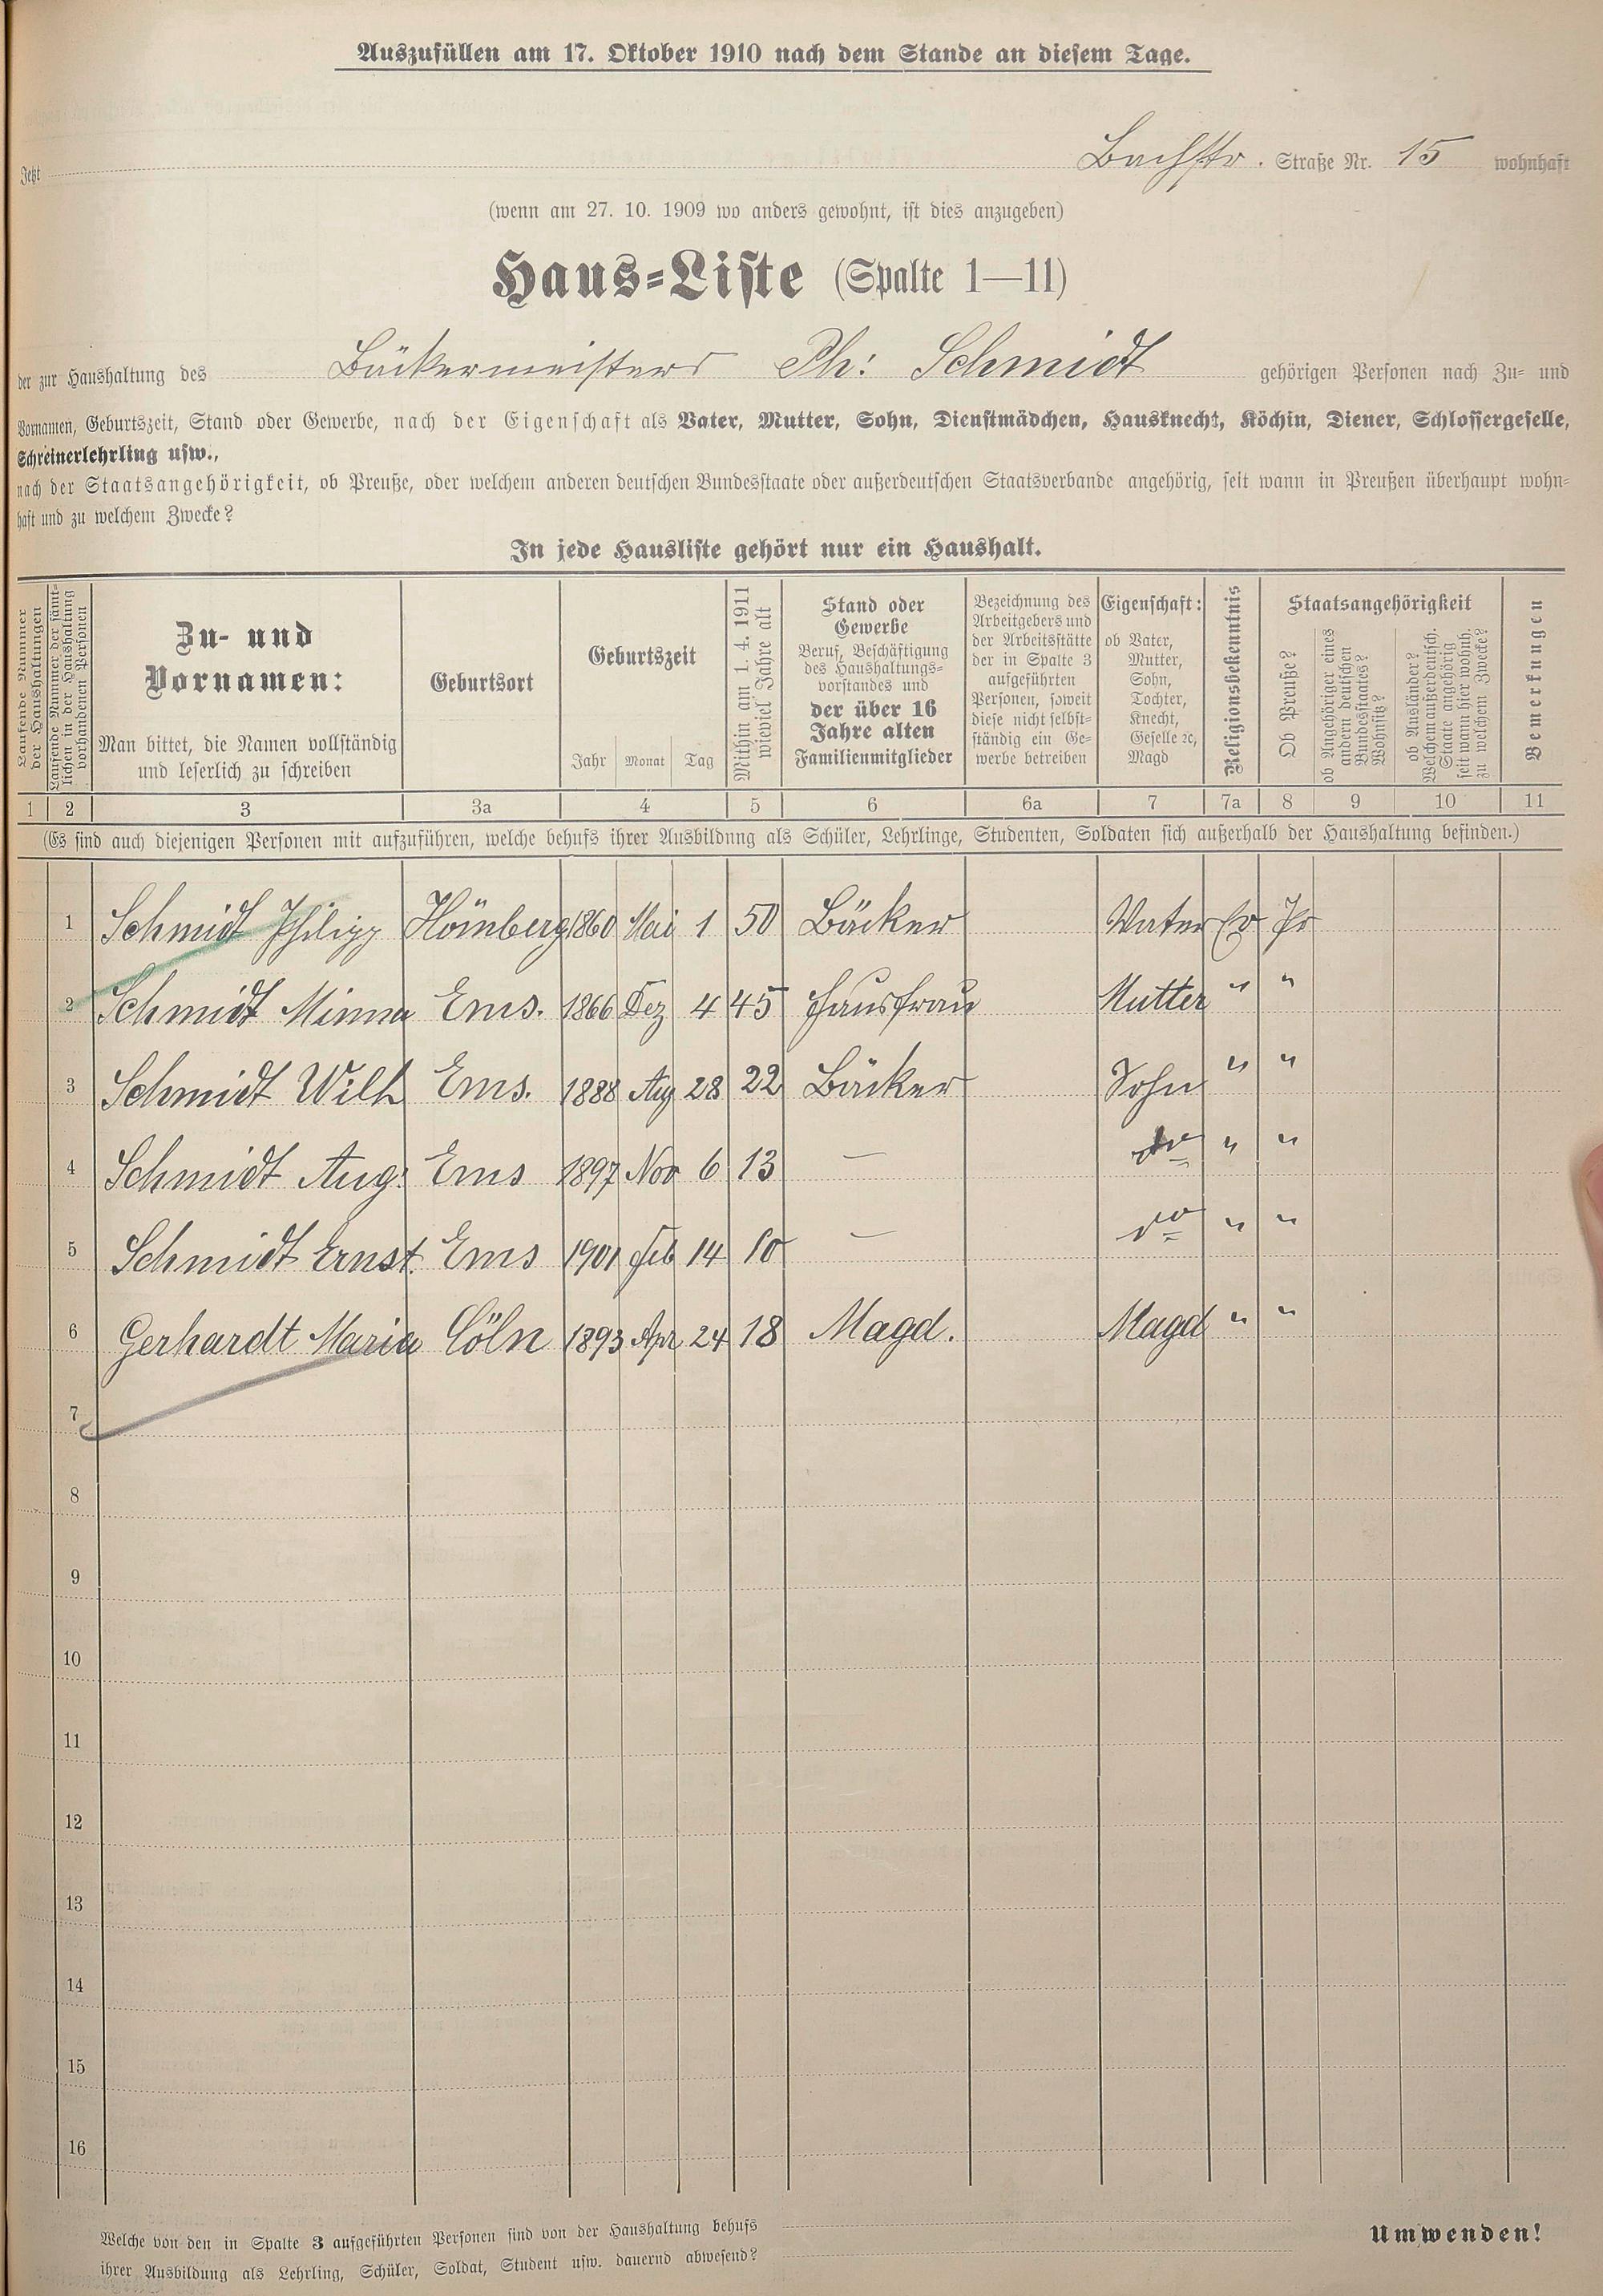 Auszufüllen am 17. Oktober 1910 nach dem Stande an diesem Tage.
Jetzt Bachstr. Straße Nr. 15 wohnhaft
(wenn am 27. 10. 1909 wo anders gewohnt, ist dies anzugeben)
Haus-Liste (Spalte 1—11)
der zur Haushaltung des Bäckermeisters Ph: Schmidt gehörigen Personen nach Zu- und
Vornamen, Geburtszeit, Stand oder Gewerbe, nach der Eigenschaft als Vater, Mutter, Sohn, Dienstmädchen, Hausknecht, Köchin, Diener, Schlossergeselle,
Schreinerlehrling usw.,
nach der Staatsangehörigkeit, ob Preuße, oder welchem anderen deutschen Bundesstaate oder außerdeutschen Staatsverbande angehörig, seit wann in Preußen überhaupt wohn-
haft und zu welchem Zwecke?
In jede Hausliste gehört nur ein Haushalt.
Laufende Nummer
der Haushaltungen
Laufende Nummer der sämt-
lichen in der Haushaltung
vorhandenen Personen
Zu- und
Vornamen:
Man bittet, die Namen vollständig
und leserlich zu schreiben
Geburtsort
Geburtszeit
Jahr Monat Tag
Mithin am 1. 4. 1911
wieviel Jahre alt
Stand oder
Gewerbe
Beruf, Beschäftigung
des Haushaltungs-
vorstandes und
der über 16
Jahre alten
Familienmitglieder
Bezeichnung des
Arbeitgebers und
der Arbeitsstätte
der in Spalte 3
aufgeführten
Personen, soweit
diese nicht selbst-
ständig ein Ge-
werbe betreiben
Eigenschaft:
ob Vater,
Mutter,
Sohn,
Tochter,
Knecht,
Geselle ꝛc,
Magd
Religionsbekenntnis
Staatsangehörigkeit
Ob Preuße?
ob Angehöriger eines
andern deutschen
Bundesstaates?
Wohnsitz?
ob Ausländer?
Welchem außerdeutsch.
Staate angehörig
seit wann hier wohnh.
zu welchem Zwecke?
Bemerkungen
1 2 3 3a 4 5 6 6a 7 7a 8 9 10 11
(Es sind auch diejenigen Personen mit aufzuführen, welche behufs ihrer Ausbildung als Schüler, Lehrlinge, Studenten, Soldaten sich außerhalb der Haushaltung befinden.)
1 Schmidt Philipp Hömberg 1860 Mai 1 50 Bäcker Vater Ev Pr
2 Schmidt Minna Ems. 1866 Dez 4 45 Hausfrau Mutter " "
3 Schmidt Wilh Ems. 1888 Aug 28 22 Bäcker Sohn " "
4 Schmidt Aug: Ems 1897 Nov 6 13 — do " "
5 Schmidt Ernst. Ems 1901 Feb 14 10 — do " "
6 Gerhardt Maria Cöln 1893 Apr 24 18 Magd. Magd " "
7
8
9
10
11
12
13
14
15
16
Welche von den in Spalte 3 aufgeführten Personen sind von der Haushaltung behufs
ihrer Ausbildung als Lehrling, Schüler, Soldat, Student usw. dauernd abwesend?
Umwenden!